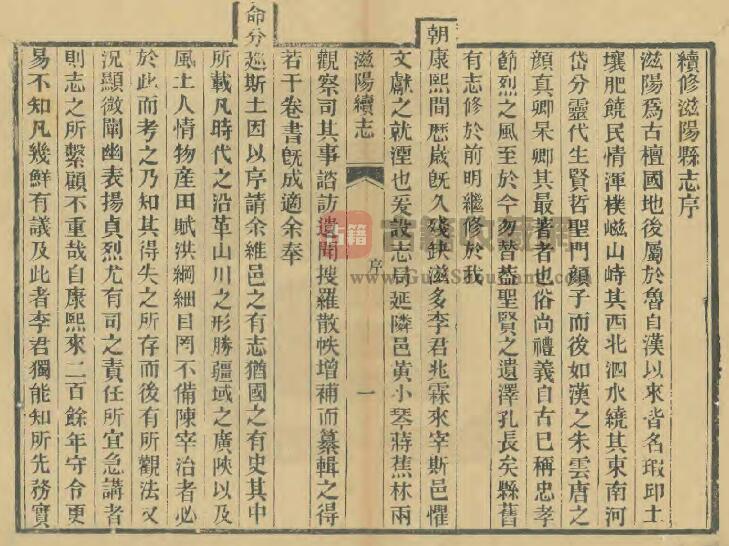 續修滋陽縣志序
滋陽爲古檀國地後屬於魯自漢以來皆名瑕邱土
壤肥饒民情渾樸嵫山峙其西北泗水繞其東南河
岱分靈代生賢哲聖門顏子而後如漢之朱雲唐之
顏真卿杲卿其最著者也俗尚禮義自古已稱忠孝
節烈之風至於今勿替蓋聖賢之遺澤孔長矣縣舊
有志修於前明繼修於我
朝康熙間歷歲旣久殘缺滋多李君兆霖來宰斯邑懼
文獻之就湮也爰設志局延隣邑黃小琴蔣蕉林兩
滋陽續志
序
一
觀察司其事諮訪遺聞搜羅散帙增補而纂輯之得
若干卷書旣成適余奉
命分廵斯土因以序請余維邑之有志猶國之有史其中
所載凡時代之沿革山川之形勝疆域之廣陜以及
風土人情物産田賦洪綱細目罔不備陳宰治者必
於此而考之乃知其得失之所存而後有所觀法又
況顯微闡幽表揚貞烈尤有司之責任所宜急講者
則志之所繫顧不重哉自康熙來二百餘年守令更
易不知凡幾鮮有議及此者李君獨能知所先務實
古籍
www.GujiShoucang.com